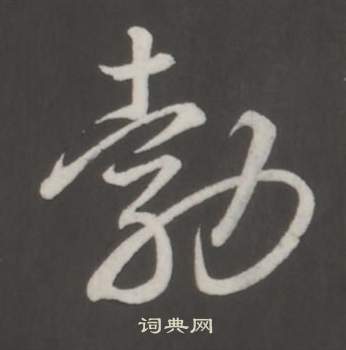 勃
词典网